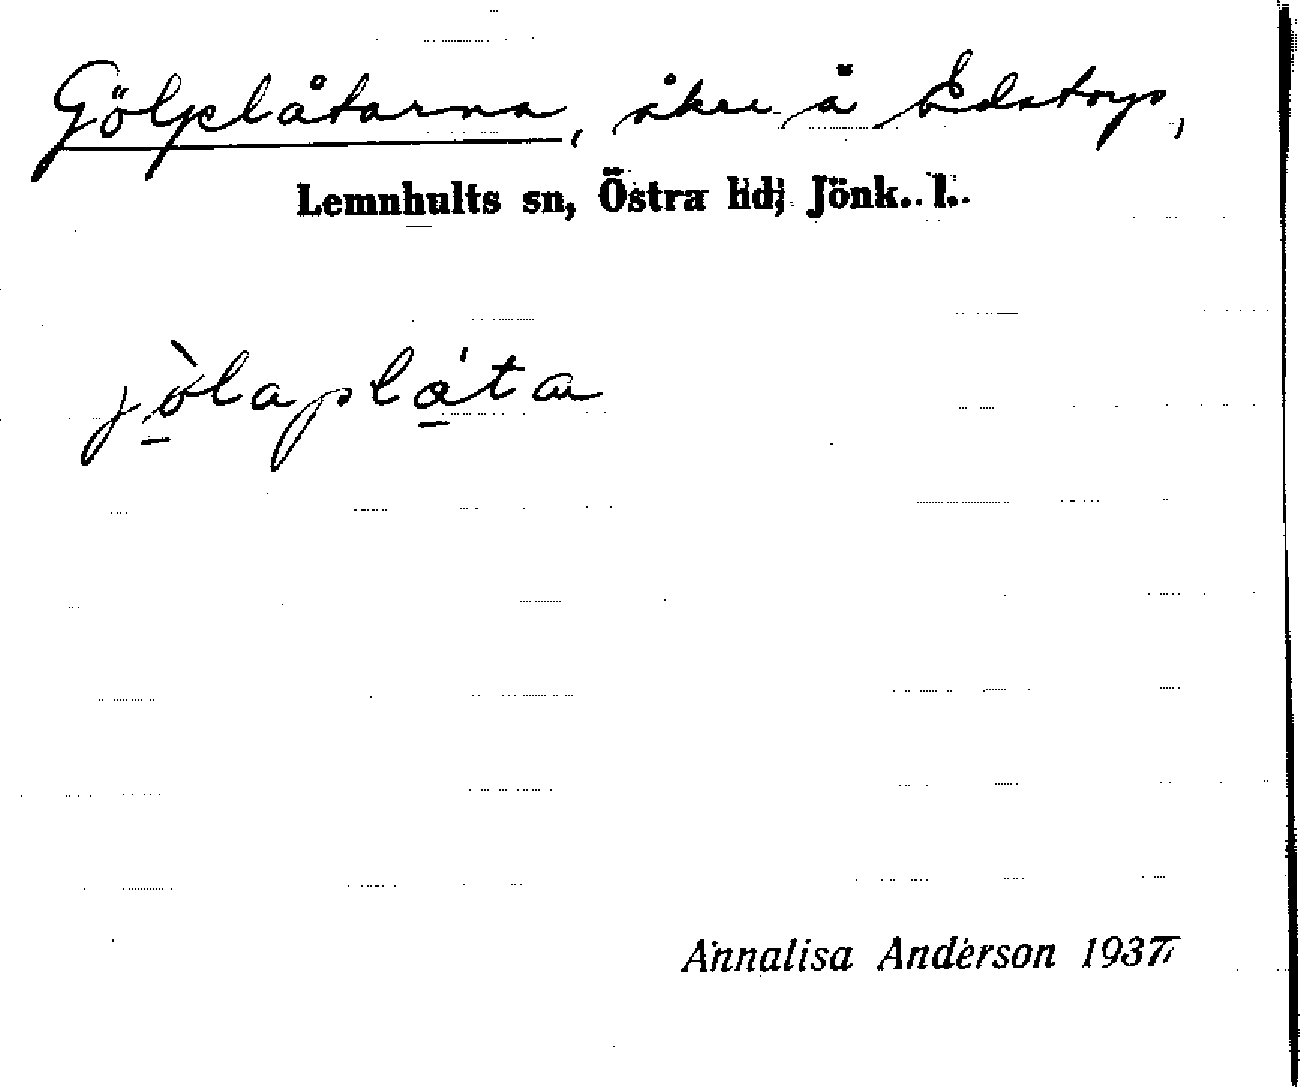 Gölplåtarna, åker å Edstorp,
Lemnhults sn, Östra hd, Jönk. l.
jòlaplåta
Annalisa Anderson 1937